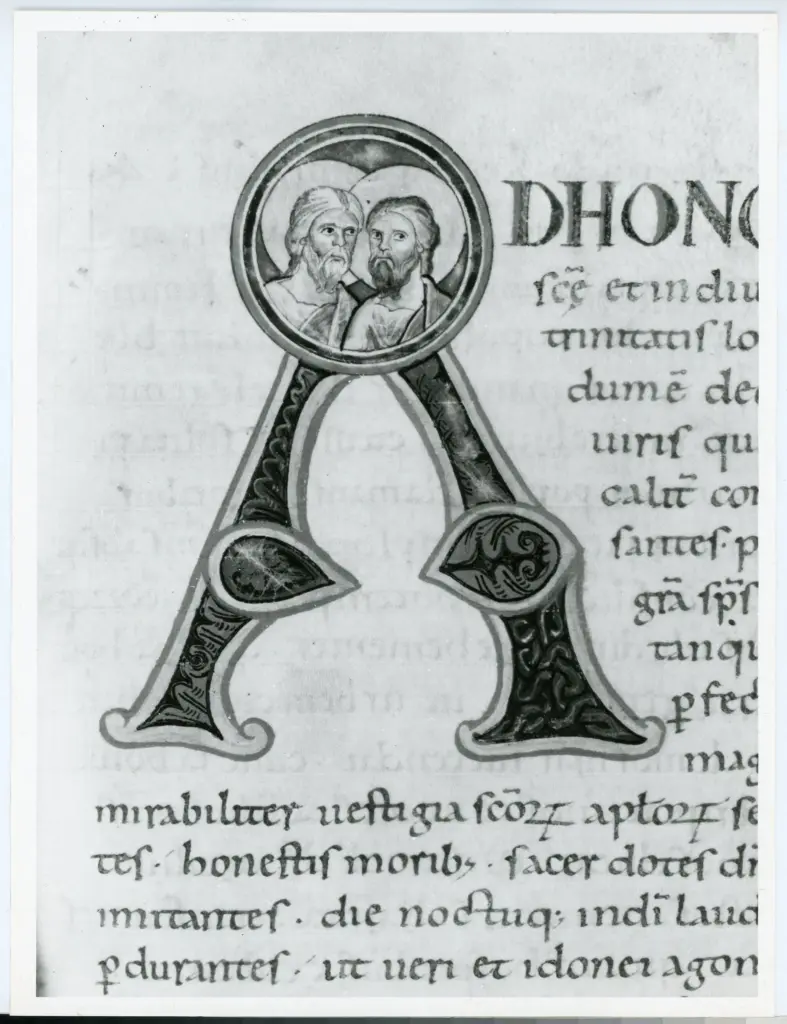 ADHON
scę et indiu
trinitatis lo
dumē de
uiris qu
calit̄ con
santes · p
gr̄a sp̄s
tanqi
ꝑfec
mag
mirabiliter uestigia scōꝝ aptōꝝ se
tes · honestis morib; · sacer dotes di
imitantes · die noctuq; indī laud
ꝑdurantes · ut ueri et idonei agon